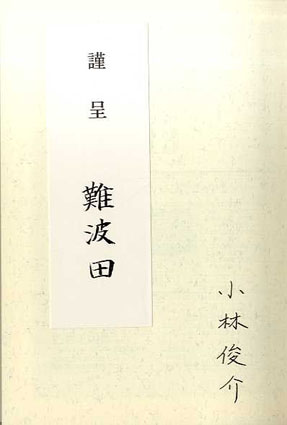 謹呈
難波田
小林俊介